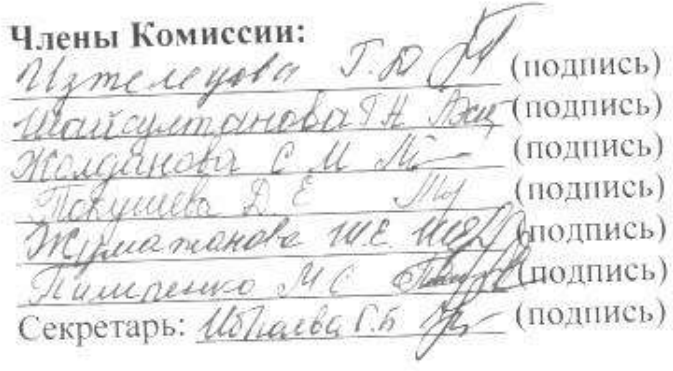 Члены Комиссии:
Изтелеуова Г.Ю (подпись)
Шайсултанова Г Н (подпись)
Жолдинова С М (подпись)
Покушева Д. Е (подпись)
Жумажанова Ш.Е. (подпись)
Пилипенко М С (подпись)
Секретарь: Ибраева Г.Б (подпись)